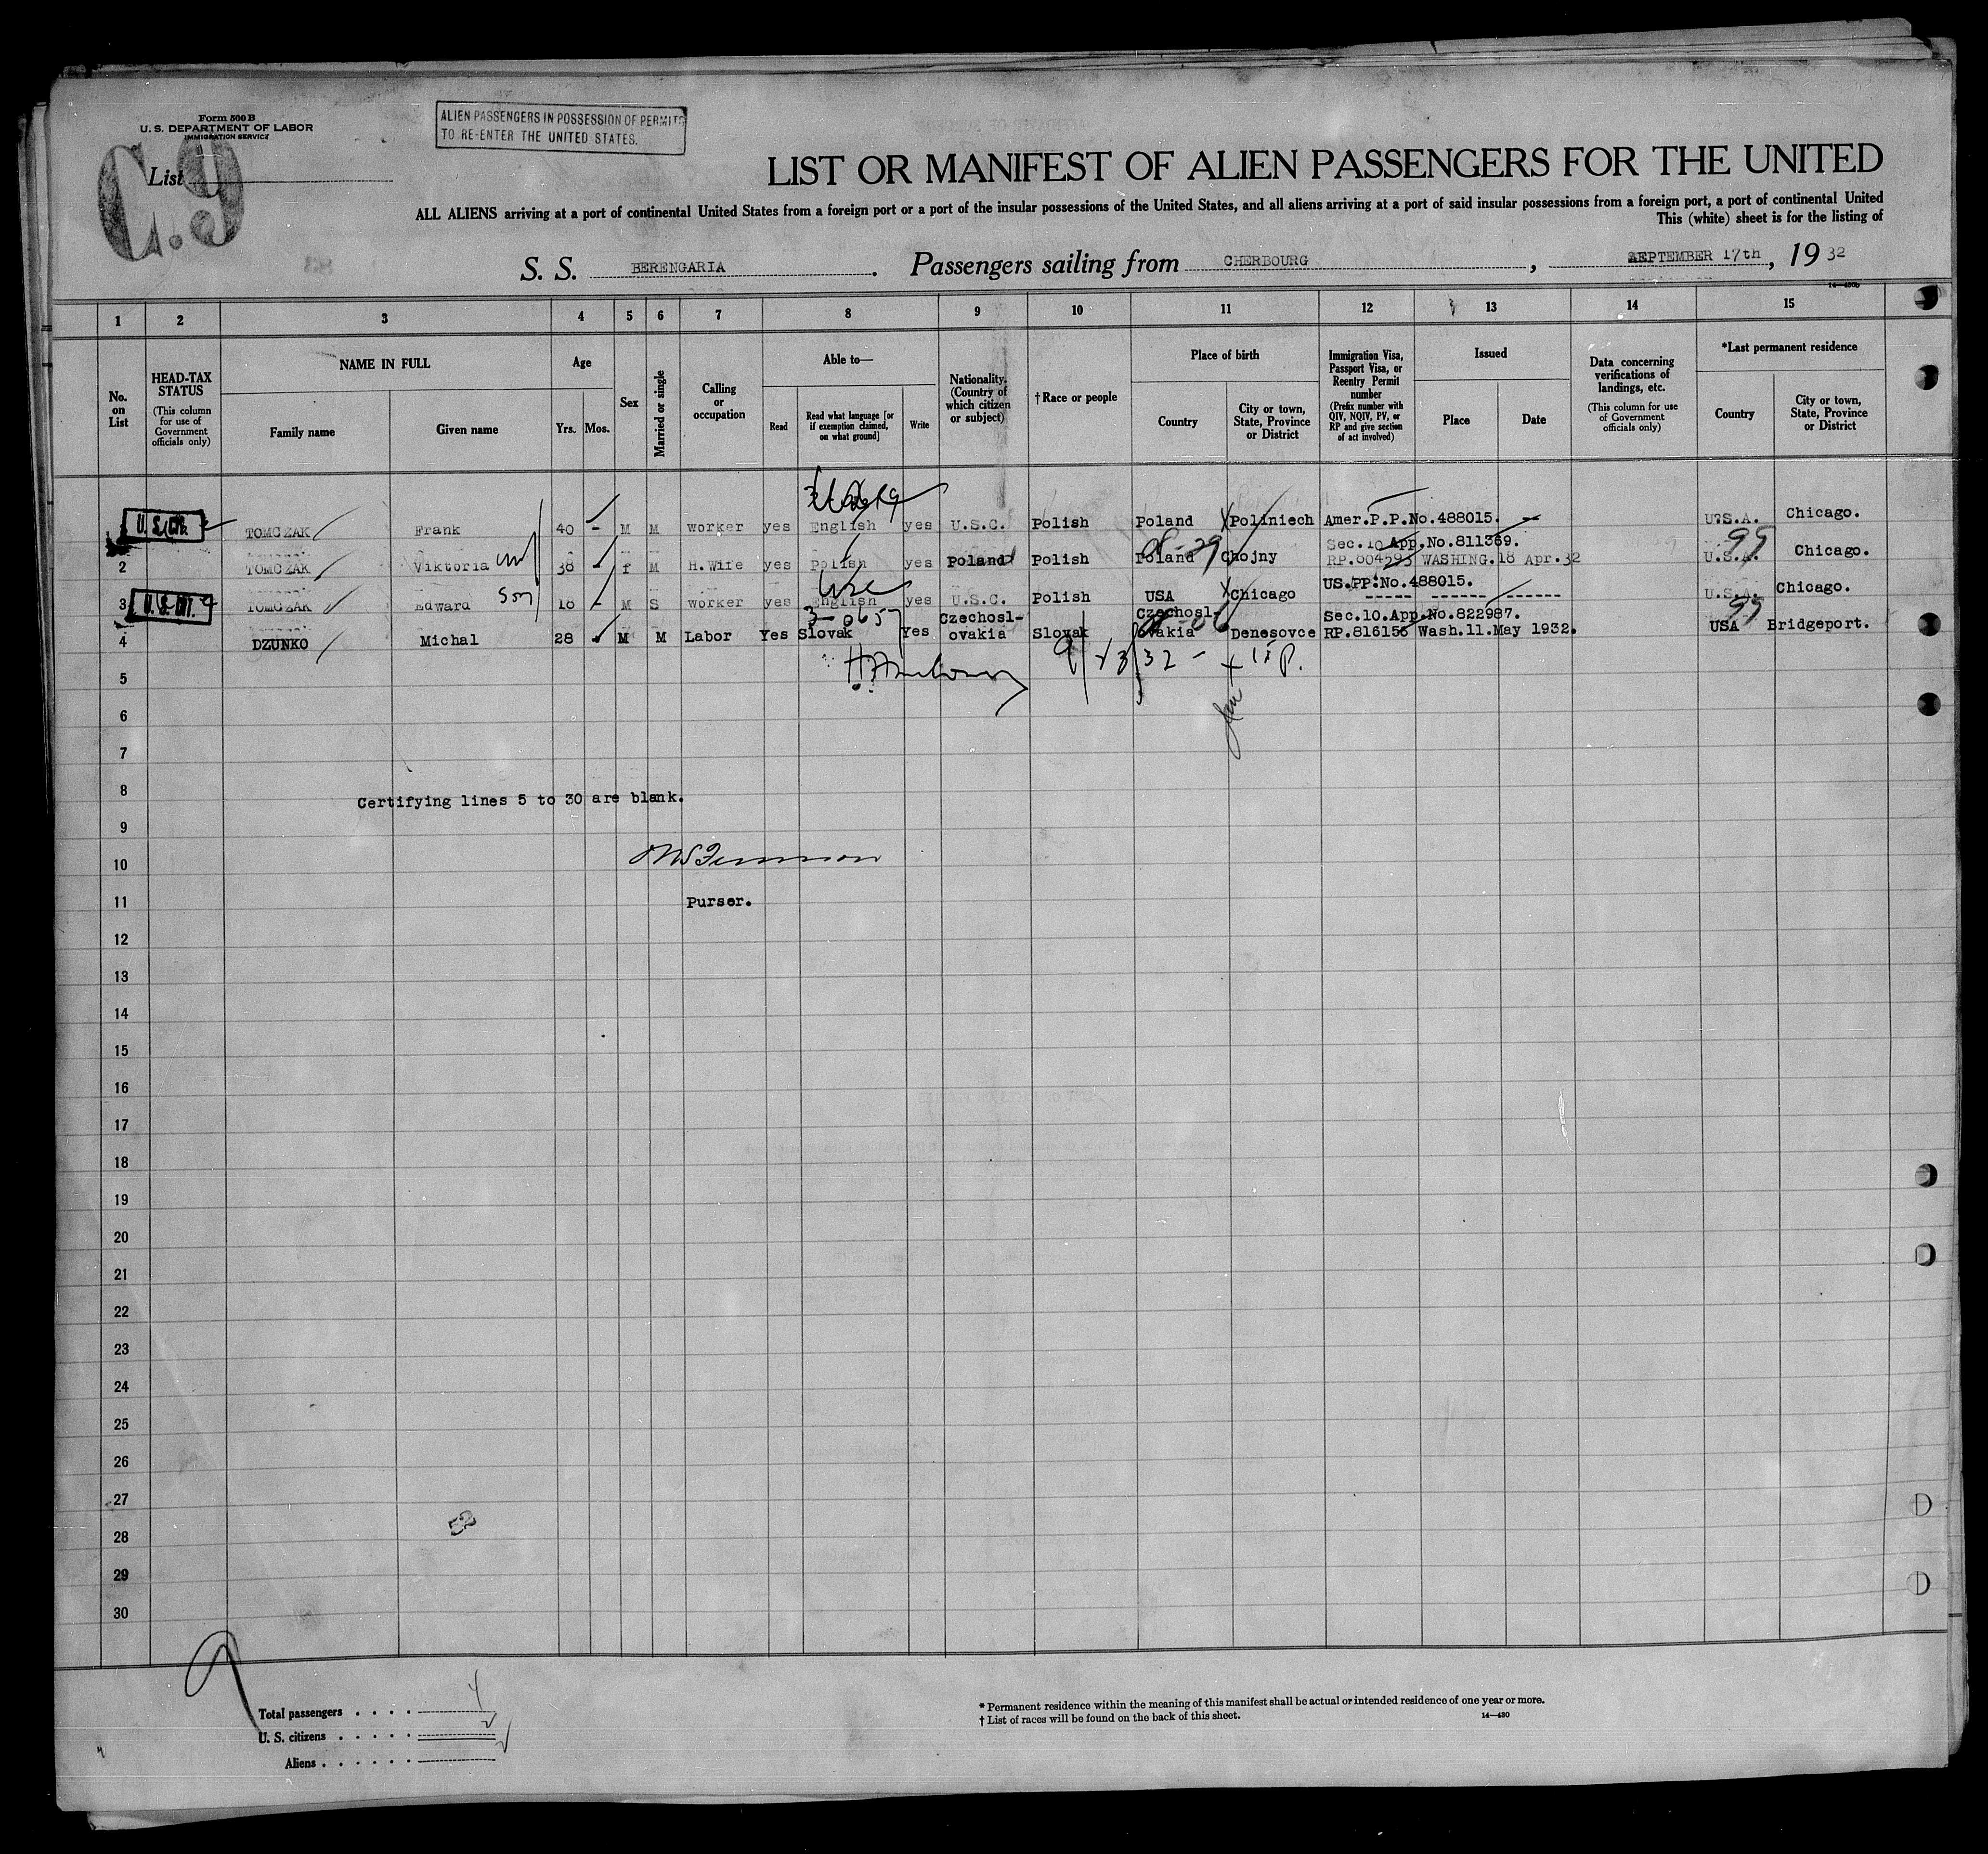 Form 500 B
U. S. DEPARTMENT OF LABOR
IMMIGRATION SERVICE
ALIEN PASSENGERS IN POSSESSION OF PERMITS
TO RE-ENTER THE UNITED STATES.
List
C.9
LIST OR MANIFEST OF ALIEN PASSENGERS FOR THE UNITED
ALL ALIENS arriving at a port of continental United States from a foreign port or a port of the insular possessions of the United States, and all aliens arriving at a port of said insular possessions from a foreign port, a port of continental United
This (white) sheet is for the listing of
S. S. BERENGARIA. Passengers sailing from CHERBOURG, SEPTEMBER 17th, 19 32
1 2 3 4 5 6 7 8 9 10 11 12 13 14 15
No. on List
HEAD-TAX STATUS (This column for use of Government officials only)
NAME IN FULL Family name Given name
Age Yrs. Mos.
Sex
Married or single
Calling or occupation
Able to— Read Read what language [or if exemption claimed, on what ground] Write
Nationality. (Country of which citizen or subject)
† Race or people
Place of birth Country City or town, State, Province or District
Immigration Visa, Passport Visa, or Reentry Permit number (Prefix number with QIV, NQIV, PV, or RP and give section of act involved)
Issued Place Date
Data concerning verifications of landings, etc. (This column for use of Government officials only)
*Last permanent residence Country City or town, State, Province or District
TOMCZAK Frank 40 - M M worker yes English yes U.S.C. Polish Poland Poliniech Amer.P.P.No.488015. — U.S.A. Chicago.
Sec.10 App.No.811369.
2 TOMCZAK Viktoria 38 f M H.Wife yes Polish yes Poland Polish Poland Chojny RP.804593 WASHING.18 Apr.32 U.S.A. Chicago.
US.PP.No.488015.
3 U.S. CIT. TOMCZAK Edward son 18 - M S worker yes English yes U.S.C. Polish USA Chicago ----- ------ ------ U.S.A. Chicago.
3-0657 Czechosl- Czechosl- Sec.10.App.No.822987.
4 DZUNKO Michal 28 M M Labor Yes Slovak Yes ovakia Slovak ovakia Denesovce RP.816156 Wash.11.May 1932. USA Bridgeport.
5
6
7
8 Certifying lines 5 to 30 are blank.
9
10
11 Purser.
12
13
14
15
16
17
18
19
20
21
22
23
24
25
26
27
28 52
29
30
Total passengers . . . . 4
U. S. citizens . . . . . 2
Aliens . . . . . . 2
* Permanent residence within the meaning of this manifest shall be actual or intended residence of one year or more.
† List of races will be found on the back of this sheet. 14—430